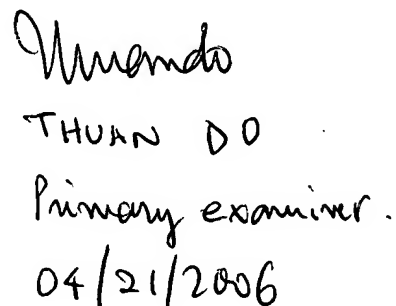 Thuando
THUAN DO
Primary examiner.
04/21/2006